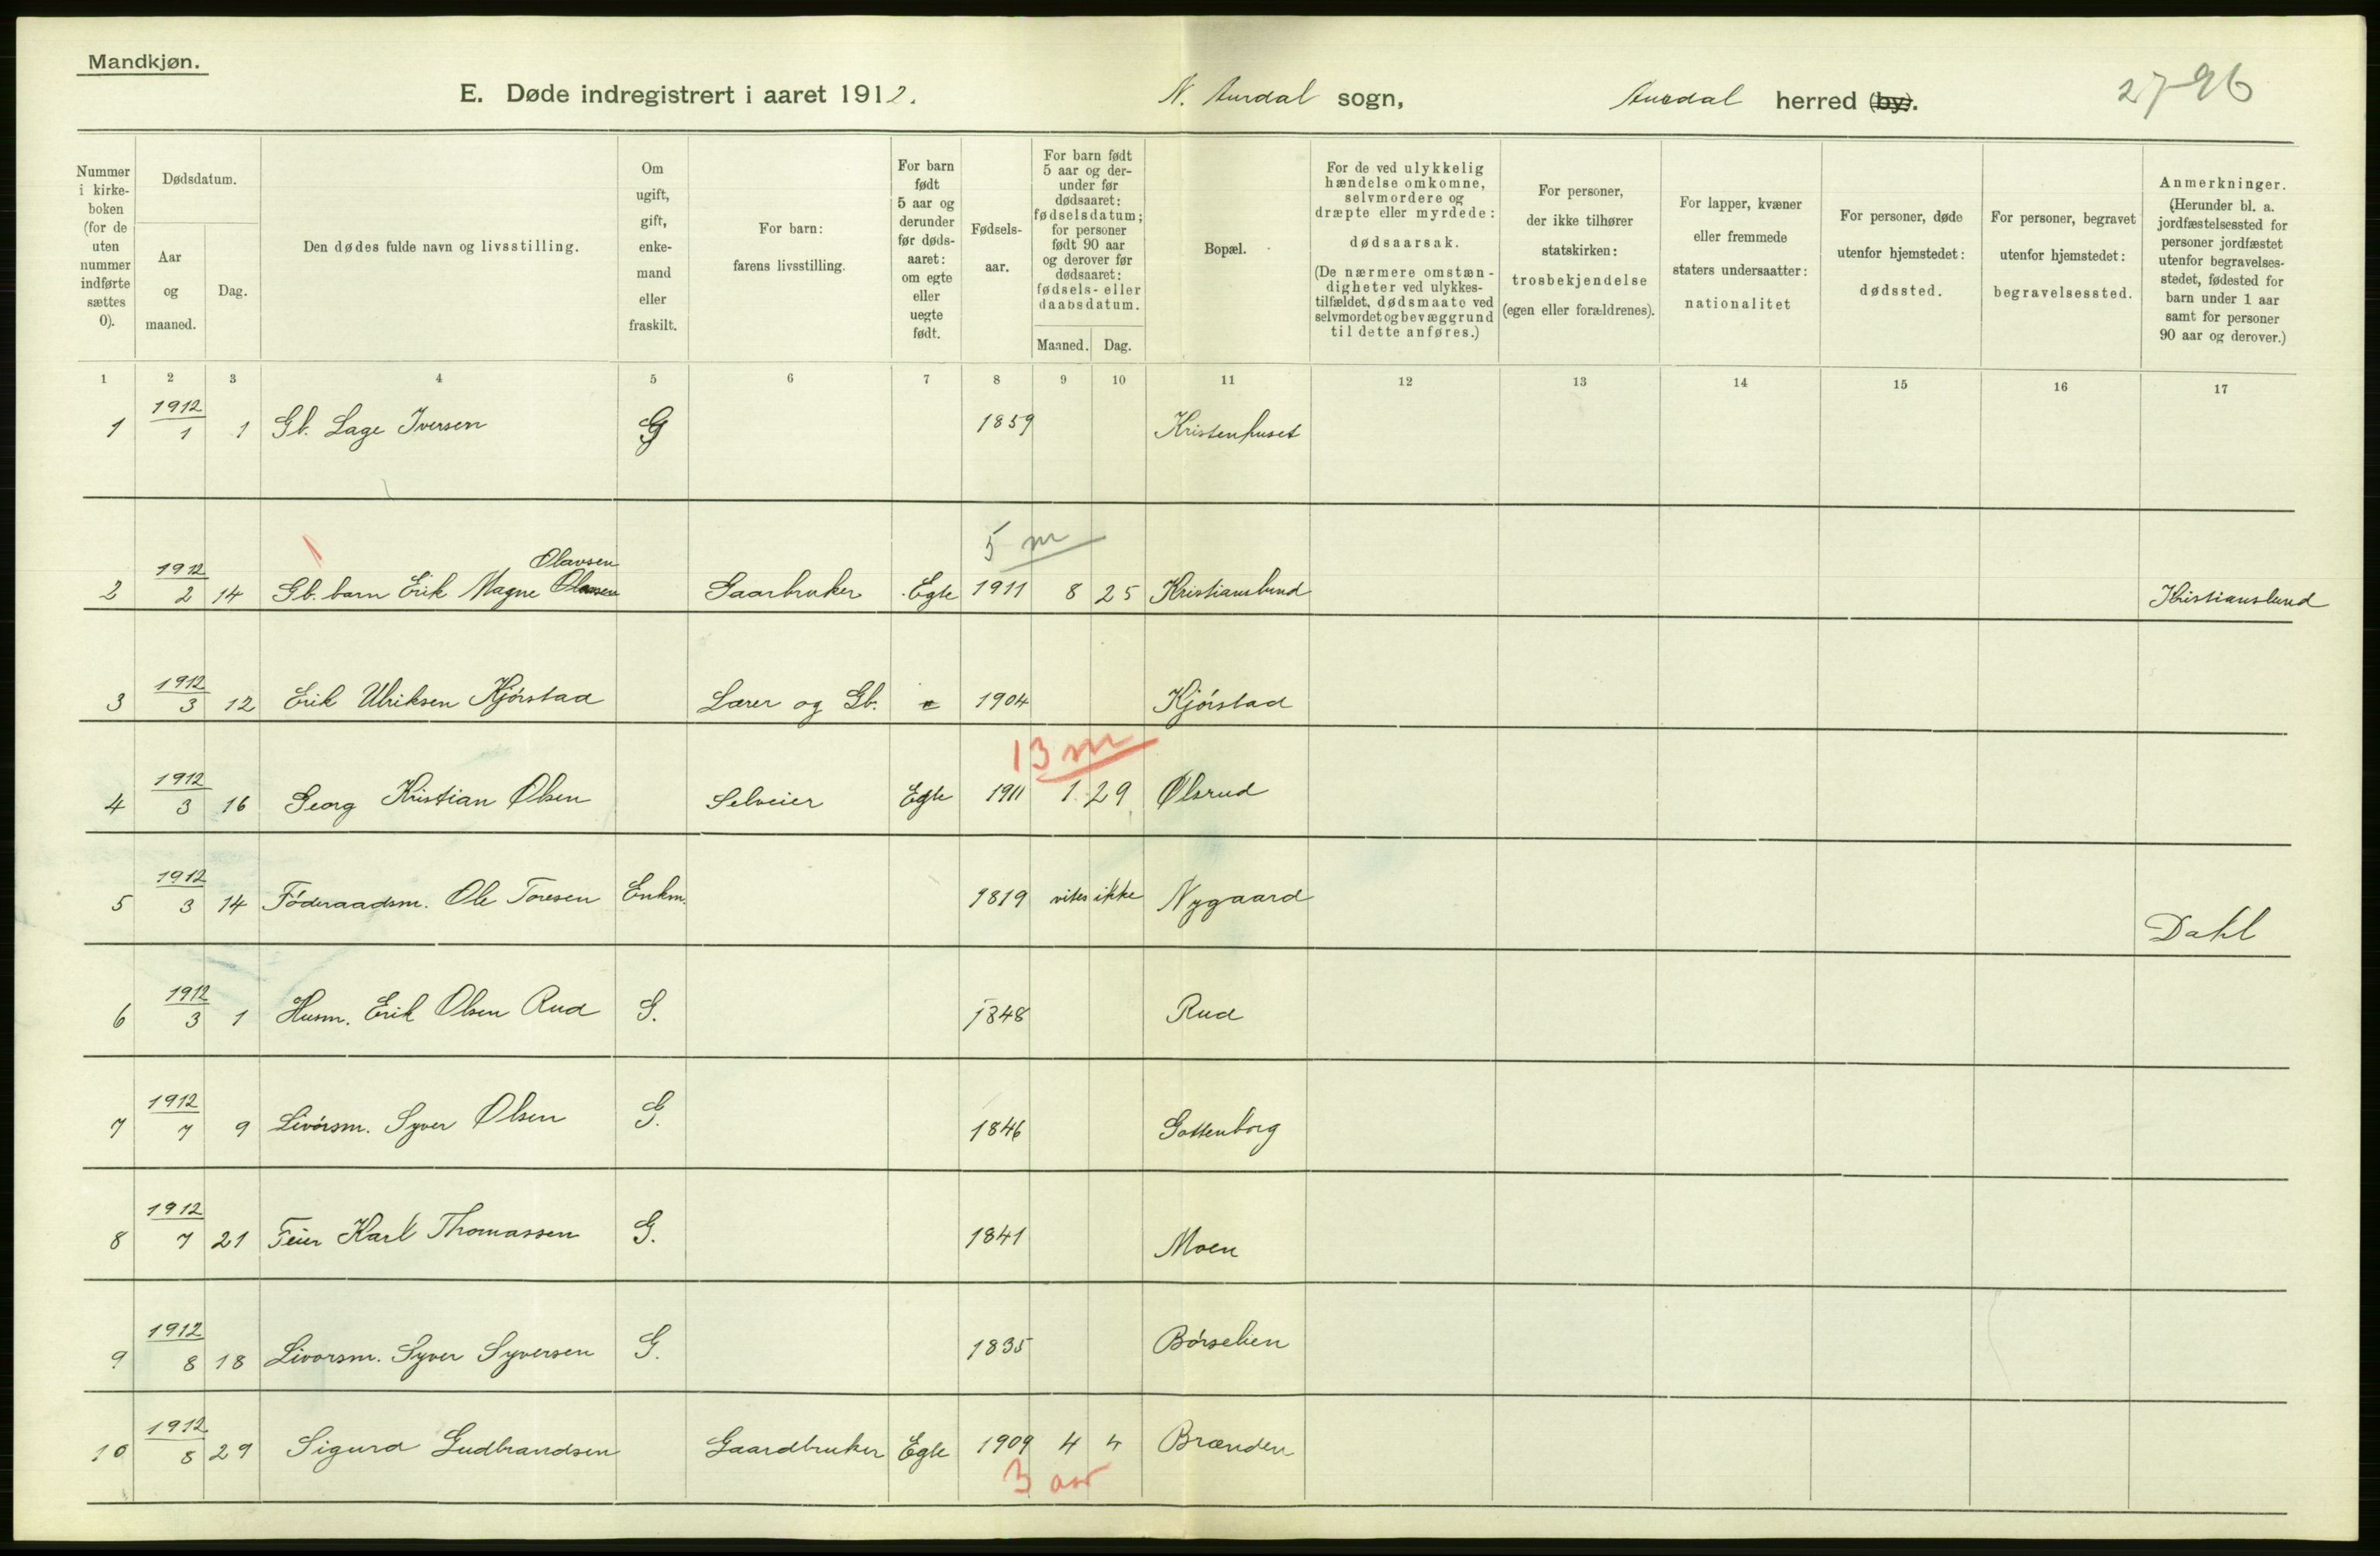 Mandkjøn.
E. Døde indregistrert i aaret 1912. N. Aurdal sogn, Aurdal herred (by). 27-96
Nummer i kirke-boken (for de uten nummer indførte sættes 0).
Dødsdatum.
Aar og maaned.
Dag.
Den dødes fulde navn og livsstilling.
Om ugift, gift, enke-mand eller fraskilt.
For barn: farens livsstilling.
For barn født 5 aar og derunder før døds-aaret: om egte eller uegte født.
Fødsels-aar.
For barn født 5 aar og der-under før dødsaaret: fødselsdatum; for personer født 90 aar og derover før dødsaaret: fødsels- eller daabsdatum.
Maaned. Dag.
Bopæl.
For de ved ulykkelig hændelse omkomne, selvmordere og dræpte eller myrdede: dødsaarsak. (De nærmere omstæn-digheter ved ulykkes-tilfældet, dødsmaate ved selvmordet og bevæggrund til dette anføres.)
For personer, der ikke tilhører statskirken: trosbekjendelse (egen eller forældrenes).
For lapper, kvæner eller fremmede staters undersaatter: nationalitet
For personer, døde utenfor hjemstedet: dødssted.
For personer, begravet utenfor hjemstedet: begravelsessted.
Anmerkninger. (Herunder bl. a. jordfæstelsessted for personer jordfæstet utenfor begravelses-stedet, fødested for barn under 1 aar samt for personer 90 aar og derover.)
1 2 3 4 5 6 7 8 9 10 11 12 13 14 15 16 17
1 1912/1 1 Gb. Lage Iversen G 1859 Kristenhuset
5 m
Olavsen
2 1912/2 14 Gb. barn Erik Magne Gaarbruker Egte 1911 8 25 Kristianslund Kristianslund
3 1912/3 12 Erik Ulriksen Kjörstad Lærer og Gb. 1904 Kjörstad
13 m
4 1912/3 16 Georg Kristian Olsen Selveier Egte 1911 1 29 Ølsrud
5 1912/3 14 Föderaadsm. Ole Toresen Enkm. 1819 vites ikke Nygaard Dahl
6 1912/3 1 Husm. Erik Olsen Rud G. 1848 Rud
7 1912/7 9 Livörsm. Syver Olsen G. 1846 Gottenborg
8 1912/7 21 Feier Karl Thomassen G. 1841 Moen
9 1912/8 18 Livorsm. Syver Syversen G. 1835 Börselien
10 1912/8 29 Sigurd Gudbrandsen Gaardbruker Egte 1909 4 4 Brænden
3 aar